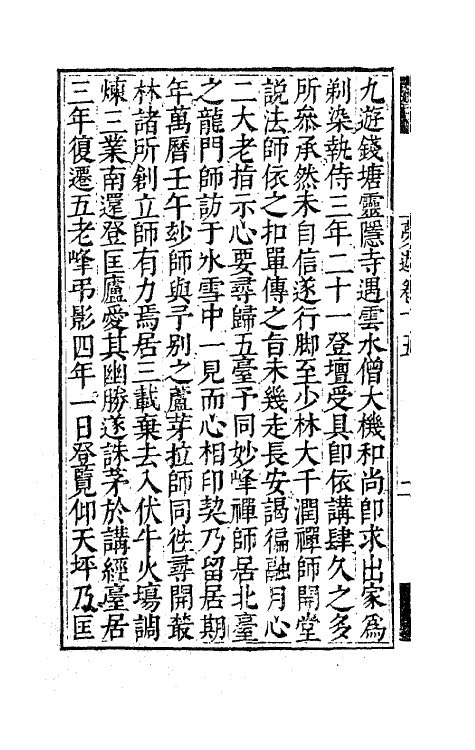 九遊錢塘靈隱寺遇雲水僧大機和尚即求出家爲
剃染執侍三年二十一登壇受具即依講肆久之多
所叅承然未自信遂行脚至少林大千潤禪師開堂
說法師依之扣單傳之旨未幾走長安謁徧融月心
二大老指示心要尋歸五臺予同妙峰禪師居北臺
之龍門師訪于冰雪中一見而心相印契乃留居期
年萬曆壬午玅師與予别之蘆芽拉師同徃尋開叢
林諸所創立師有力焉居三載棄去入伏牛火塲調
煉三業南還登匡廬愛其幽勝遂誅茅於講經臺居
三年復遷五老峰弔影四年一日登覧仰天坪乃匡
夢遊卷十五